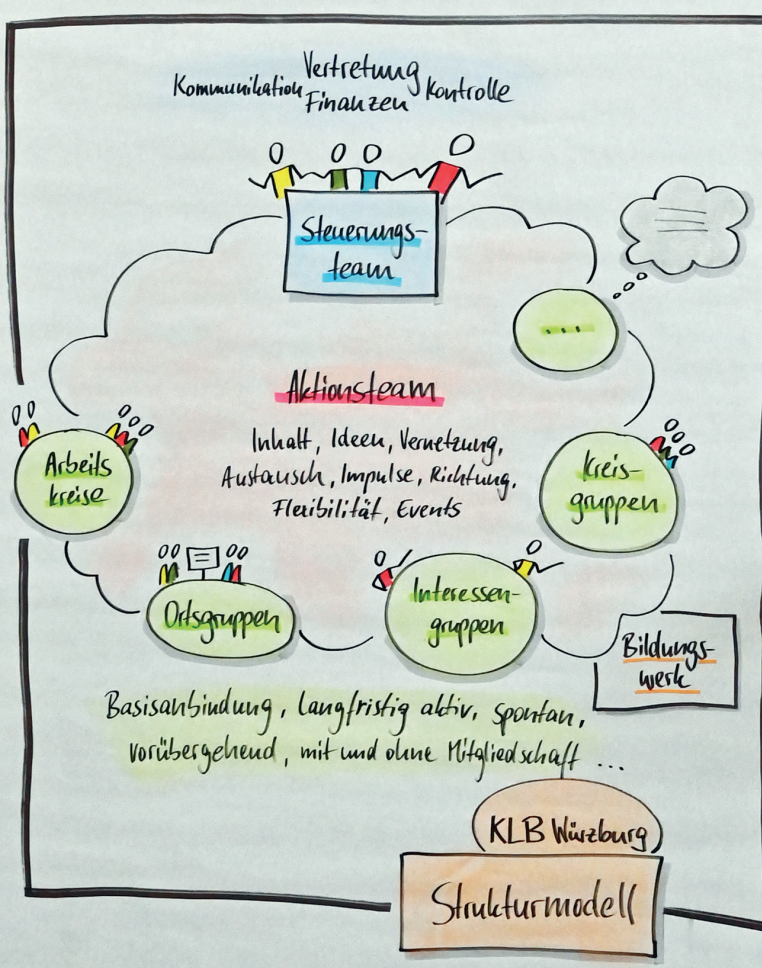 Vertretung
Kommunikation Finanzen Kontrolle
Steuerungs-
team
...
Aktionsteam
Inhalt, Ideen, Vernetzung,
Austausch, Impulse, Richtung,
Flexibilität, Events
Arbeits
kreise
Kreis-
gruppen
Ortsgruppen
Interessen-
gruppen
Bildungs-
werk
Basisanbindung, langfristig aktiv, spontan,
vorübergehend, mit und ohne Mitgliedschaft ...
KLB Würzburg
Strukturmodell